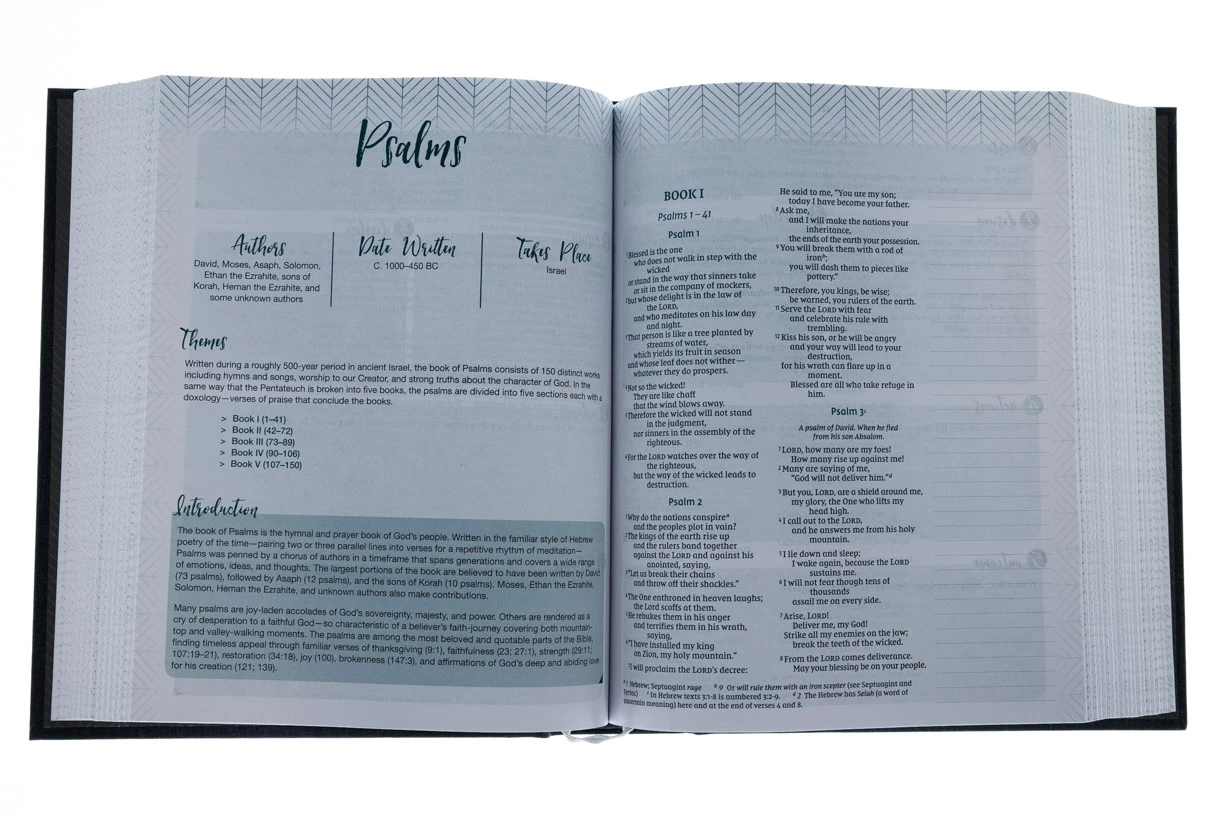 Psalms
Authors
David, Moses, Asaph, Solomon,
Ethan the Ezrahite, sons of
Korah, Heman the Ezrahite, and
some unknown authors
Date Written
C. 1000–450 BC
Takes Place
Israel
Themes
Written during a roughly 500-year period in ancient Israel, the book of Psalms consists of 150 distinct works
including hymns and songs, worship to our Creator, and strong truths about the character of God. In the
same way that the Pentateuch is broken into five books, the psalms are divided into five sections each with a
doxology—verses of praise that conclude the books.
> Book I (1–41)
> Book II (42–72)
> Book III (73–89)
> Book IV (90–106)
> Book V (107–150)
Introduction
The book of Psalms is the hymnal and prayer book of God's people. Written in the familiar style of Hebrew
poetry of the time—pairing two or three parallel lines into verses for a repetitive rhythm of meditation—
Psalms was penned by a chorus of authors in a timeframe that spans generations and covers a wide range
of emotions, ideas, and thoughts. The largest portions of the book are believed to have been written by David
(73 psalms), followed by Asaph (12 psalms), and the sons of Korah (10 psalms). Moses, Ethan the Ezrahite,
Solomon, Heman the Ezrahite, and unknown authors also make contributions.
Many psalms are joy-laden accolades of God's sovereignty, majesty, and power. Others are rendered as a
cry of desperation to a faithful God—so characteristic of a believer's faith-journey covering both mountain-
top and valley-walking moments. The psalms are among the most beloved and quotable parts of the Bible,
finding timeless appeal through familiar verses of thanksgiving (9:1), faithfulness (23; 27:1), strength (29:11;
107:19–21), restoration (34:18), joy (100), brokenness (147:3), and affirmations of God's deep and abiding love
for his creation (121; 139).
BOOK I
Psalms 1–41
Psalm 1
1Blessed is the one
who does not walk in step with the
wicked
or stand in the way that sinners take
or sit in the company of mockers,
2but whose delight is in the law of
the LORD,
and who meditates on his law day
and night.
3That person is like a tree planted by
streams of water,
which yields its fruit in season
and whose leaf does not wither—
whatever they do prospers.
4Not so the wicked!
They are like chaff
that the wind blows away.
5Therefore the wicked will not stand
in the judgment,
nor sinners in the assembly of the
righteous.
6For the LORD watches over the way of
the righteous,
but the way of the wicked leads to
destruction.
Psalm 2
1Why do the nations conspirea
and the peoples plot in vain?
2The kings of the earth rise up
and the rulers band together
against the LORD and against his
anointed, saying,
3"Let us break their chains
and throw off their shackles."
4The One enthroned in heaven laughs;
the Lord scoffs at them.
5He rebukes them in his anger
and terrifies them in his wrath,
saying,
6"I have installed my king
on Zion, my holy mountain."
7I will proclaim the LORD's decree:
He said to me, "You are my son;
today I have become your father.
8Ask me,
and I will make the nations your
inheritance,
the ends of the earth your possession.
9You will break them with a rod of
ironb;
you will dash them to pieces like
pottery."
10Therefore, you kings, be wise;
be warned, you rulers of the earth.
11Serve the LORD with fear
and celebrate his rule with
trembling.
12Kiss his son, or he will be angry
and your way will lead to your
destruction,
for his wrath can flare up in a
moment.
Blessed are all who take refuge in
him.
Psalm 3c
A psalm of David. When he fled
from his son Absalom.
1LORD, how many are my foes!
How many rise up against me!
2Many are saying of me,
"God will not deliver him."d
3But you, LORD, are a shield around me,
my glory, the One who lifts my
head high.
4I call out to the LORD,
and he answers me from his holy
mountain.
5I lie down and sleep;
I wake again, because the LORD
sustains me.
6I will not fear though tens of
thousands
assail me on every side.
7Arise, LORD!
Deliver me, my God!
Strike all my enemies on the jaw;
break the teeth of the wicked.
8From the LORD comes deliverance.
May your blessing be on your people.
a1 Hebrew; Septuagint rage b9 Or will rule them with an iron scepter (see Septuagint and
Syriac) cIn Hebrew texts 3:1-8 is numbered 3:2-9. d2 The Hebrew has Selah (a word of
uncertain meaning) here and at the end of verses 4 and 8.